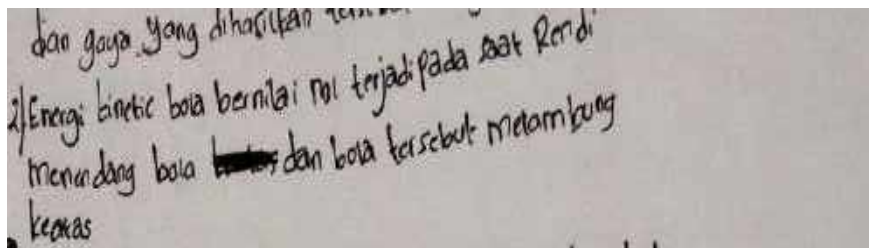 dan gaya yang dihasilkan
2) Energi kinetic bola bernilai nol terjadi pada saat Rendi
menendang bola dan bola tersebut melambung
keatas